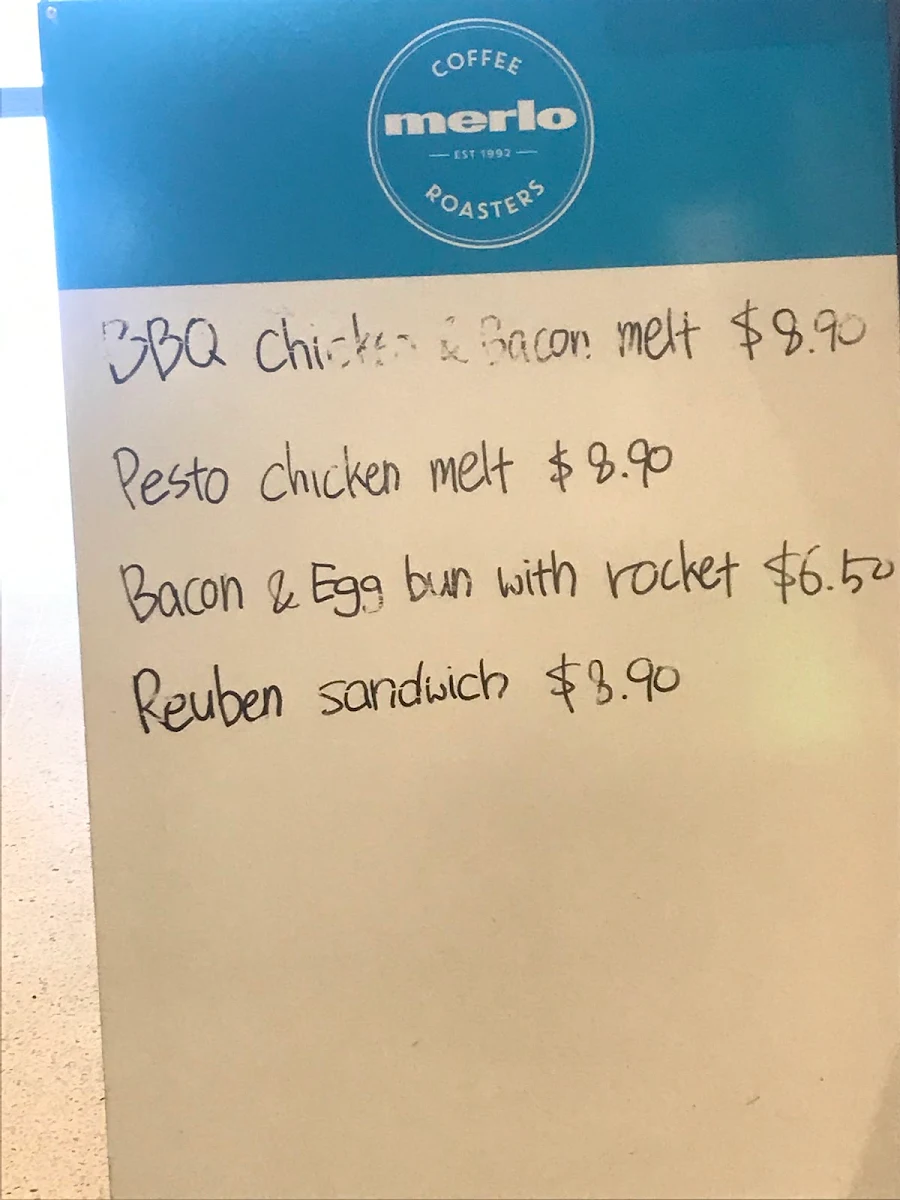 COFFEE
merlo
EST 1992
ROASTERS
BBQ Chicken & Bacon melt $8.90
Pesto chicken melt $8.90
Bacon & Egg bun with rocket $6.50
Reuben sandwich $8.90